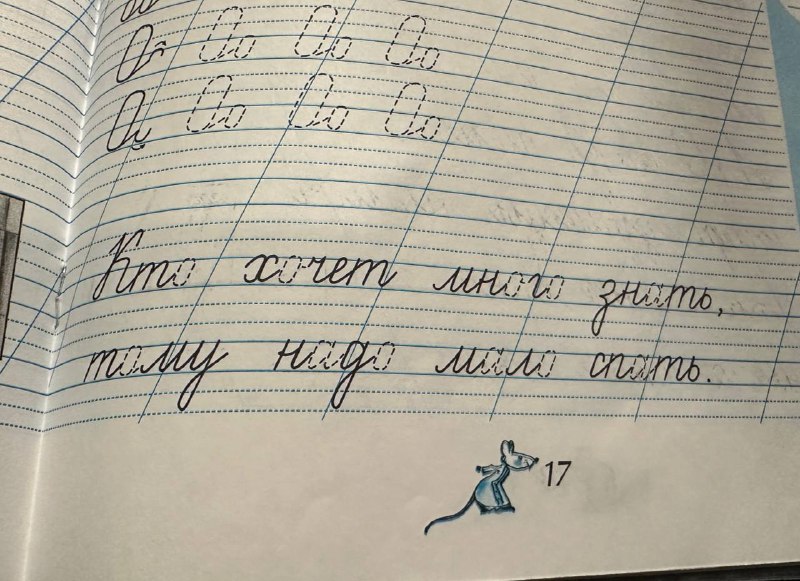 Оо Оо Оо Оо
Оо Оо Оо Оо
Кто хочет много знать,
тому надо мало спать.
17